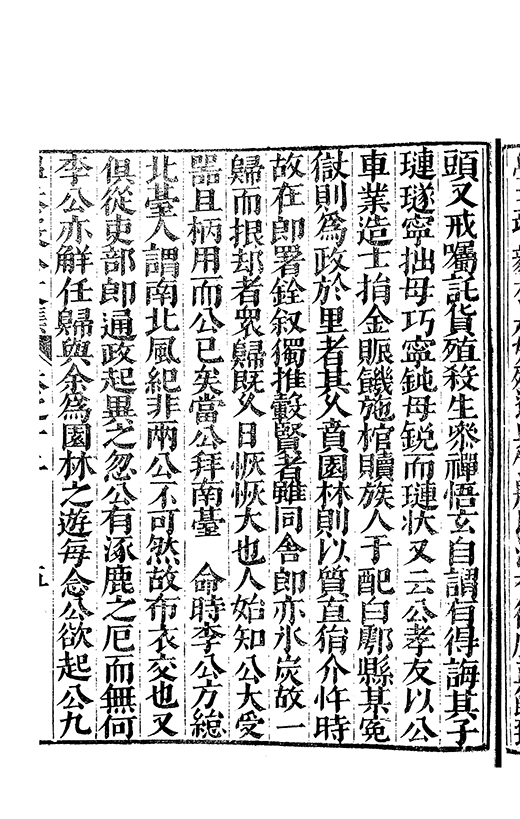 頭又戒囑託貨殖殺生叅禪悟玄自謂有得誨其子
璉璲寧拙毋巧寧鈍毋銳而璉狀又云公孝友以公
車業造士捐金賑饑施棺贖族人于配白鄠縣某冤
獄則爲政於里者其父賁園林則以質直狷介忤時
故在郎署銓叙獨推轂賢者雖同舍郎亦氷炭故一
歸而抿却者衆歸旣久日恢恢大也人始知公大受
器且柄用而公已矣當公拜南臺　命時李公方總
北臺人謂南北風紀非兩公不可然故布衣交也又
俱從吏部郎通政起異之忽公有涿鹿之厄而無何
李公亦觧任歸與余爲園林之遊每念公欲起公九
五